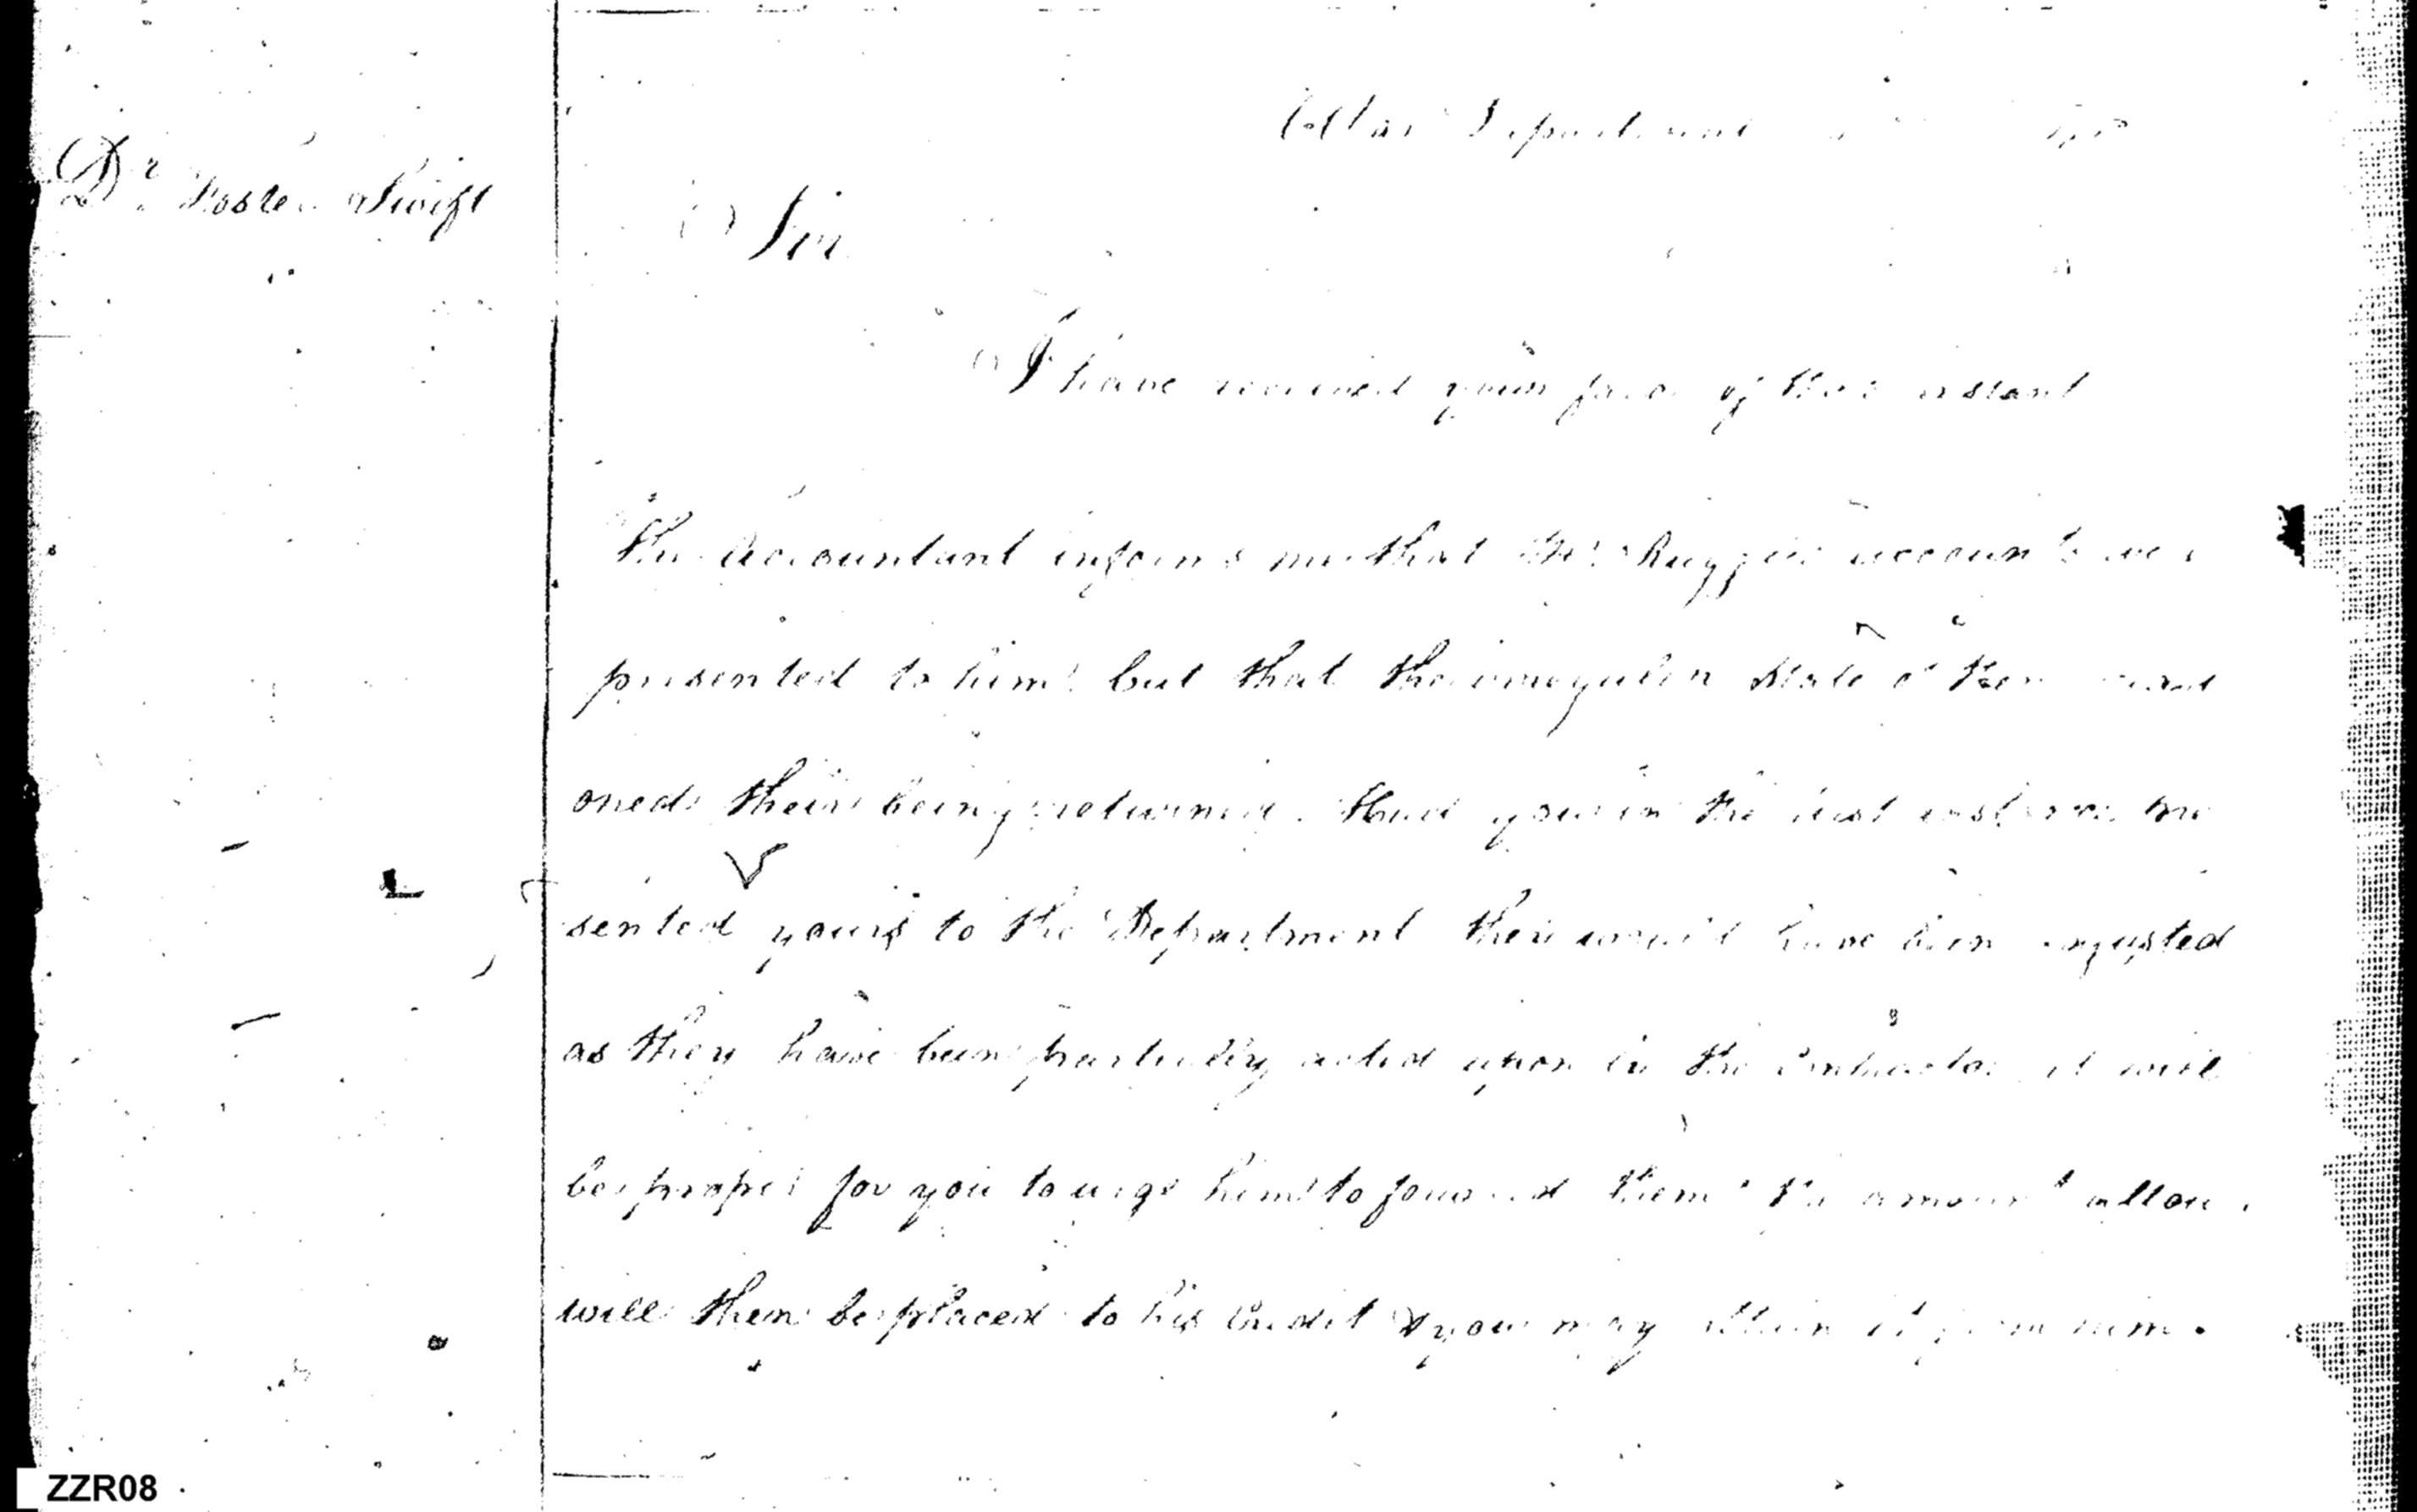 War Department
Dr. Foster Swift
Sir
I have received your favor of the instant
The Accountant informs me that Mr. Ruggles accounts were
presented to him but that the irregular state of them
oned their being returned. Had you in the first instance pre
sented yours to the Department they would have been adjusted
as they have been partially acted upon by the Contractor it will
be proper for you to urge him to forward them the amount allow
will then be placed to his Credit & you may obtain it from him.
ZZR08